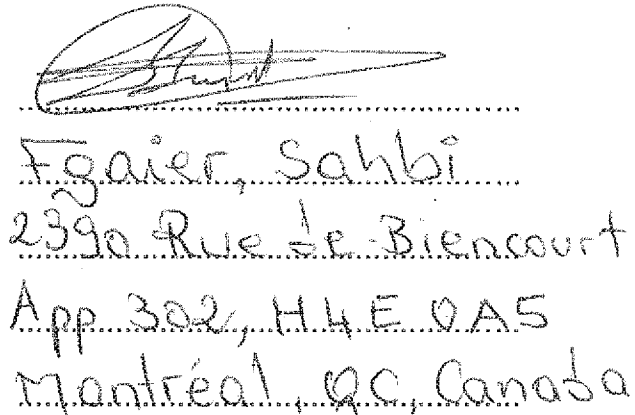 Fgaier, Sahbi
2390 Rue de Biencourt
App 302, H4E 0A5
Montréal, QC, Canada